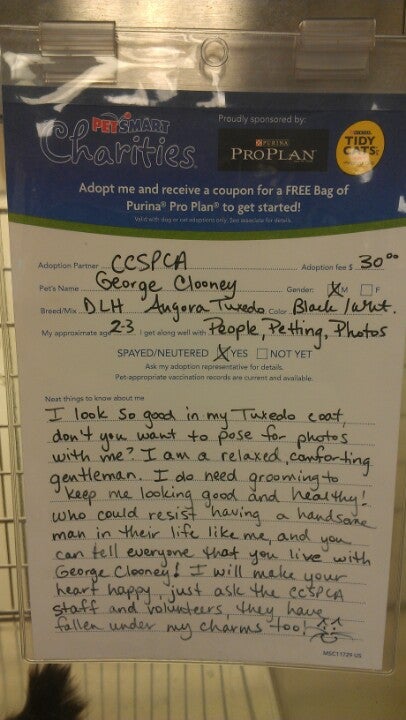 PETSMART
Charities
Proudly sponsored by:
PURINA
PRO PLAN
TIDY
CATS
Adopt me and receive a coupon for a FREE Bag of
Purina® Pro Plan® to get started!
Valid with dog or cat adoptions only. See associate for details.
Adoption Partner CCSPCA Adoption fee $ 30⁰⁰
Pet's Name George Clooney Gender: X M F
Breed/Mix DLH Angora Tuxedo Color Black/wht.
My approximate age 2-3 I get along well with People, Petting, Photos
SPAYED/NEUTERED X YES NOT YET
Ask my adoption representative for details.
Pet-appropriate vaccination records are current and available.
Neat things to know about me
I look so good in my Tuxedo coat,
don't you want to pose for photos
with me? I am a relaxed, comforting
gentleman. I do need grooming to
keep me looking good and healthy!
who could resist having a handsome
man in their life like me, and you
can tell everyone that you live with
George Clooney! I will make your
heart happy, just ask the CCSPCA
staff and volunteers, they have
fallen under my charms too!
MSC11729-US